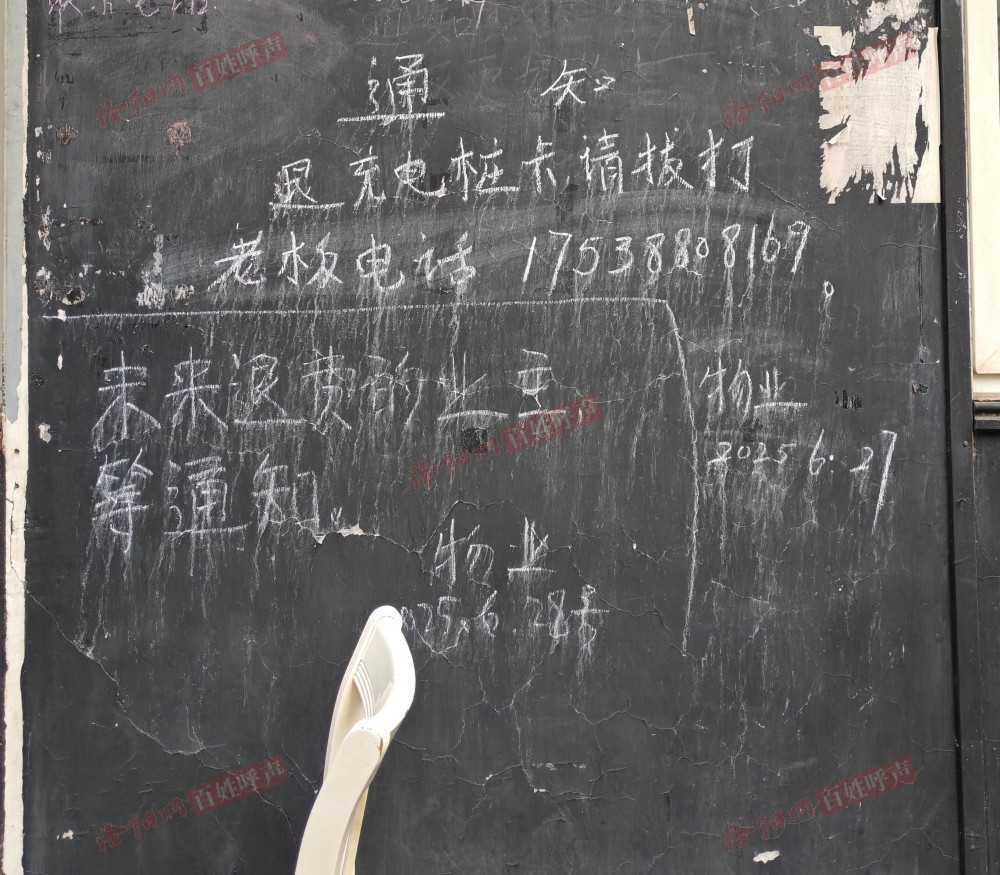 通 知
退充电桩卡请拔打
老板电话 17538808169。
物业
2025 6.27
未来退费的业主
等通知。
物业
025.6.28号
洛阳网 百姓呼声
洛阳网 百姓呼声
洛阳网 百姓呼声
洛阳网 百姓呼声
洛阳网 百姓呼声